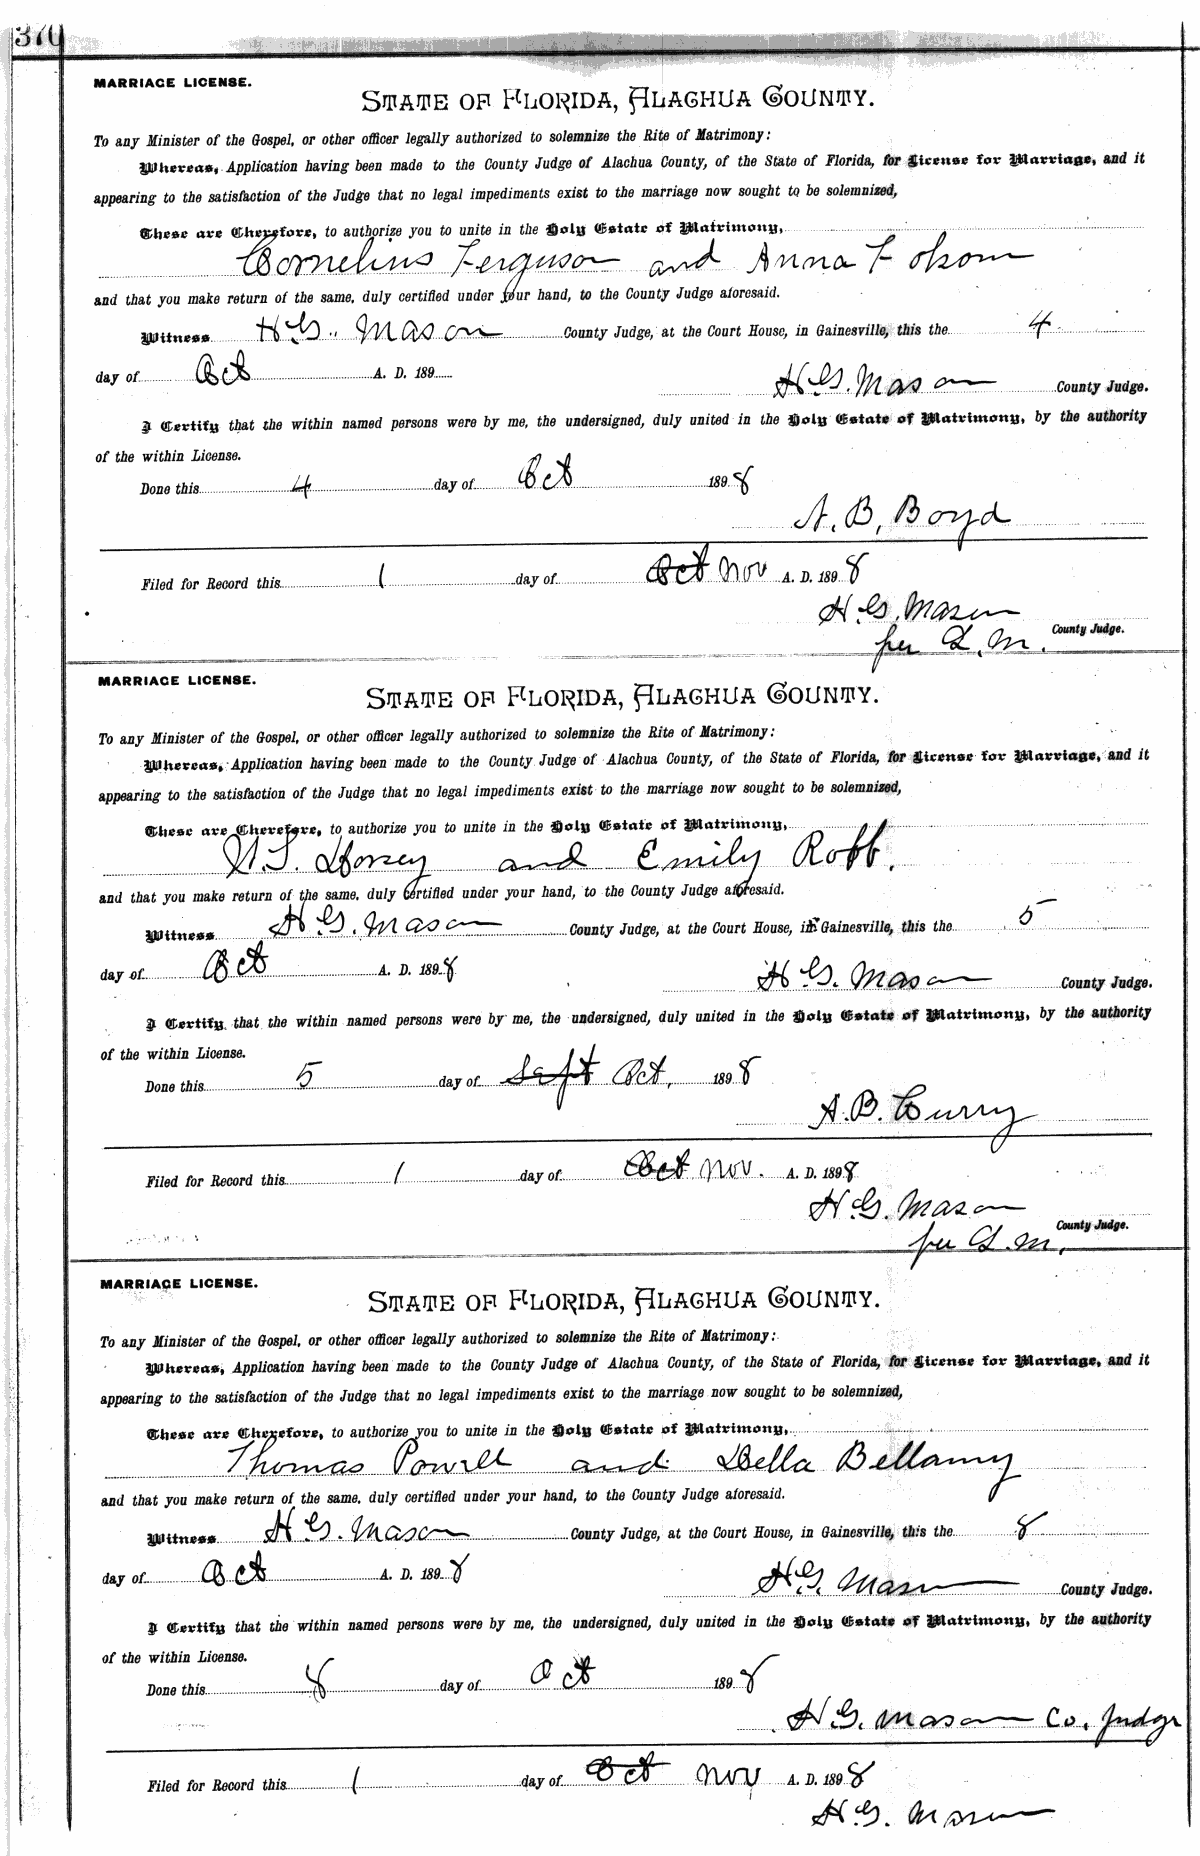 370
MARRIAGE LICENSE.
STATE OF FLORIDA, ALACHUA COUNTY.
To any Minister of the Gospel, or other officer legally authorized to solemnize the Rite of Matrimony:
Whereas, Application having been made to the County Judge of Alachua County, of the State of Florida, for License for Marriage, and it
appearing to the satisfaction of the Judge that no legal impediments exist to the marriage now sought to be solemnized,
These are Therefore, to authorize you to unite in the Holy Estate of Matrimony,
Cornelius Ferguson and Anna Folsom
and that you make return of the same, duly certified under your hand, to the County Judge aforesaid.
Witness H.G. Mason County Judge, at the Court House, in Gainesville, this the 4
day of Oct A. D. 189
H.G. Mason County Judge.
I Certify that the within named persons were by me, the undersigned, duly united in the Holy Estate of Matrimony, by the authority
of the within License.
Done this 4 day of Oct 1898
A. B. Boyd
Filed for Record this 1 day of Oct Nov A. D. 1898
H.G. Mason
County Judge.
per L. M.
MARRIAGE LICENSE.
STATE OF FLORIDA, ALACHUA COUNTY.
To any Minister of the Gospel, or other officer legally authorized to solemnize the Rite of Matrimony:
Whereas, Application having been made to the County Judge of Alachua County, of the State of Florida, for License for Marriage, and it
appearing to the satisfaction of the Judge that no legal impediments exist to the marriage now sought to be solemnized,
These are Therefore, to authorize you to unite in the Holy Estate of Matrimony,
Dorsey and Emily Robb.
and that you make return of the same, duly certified under your hand, to the County Judge aforesaid.
Witness H.G. Mason County Judge, at the Court House, in Gainesville, this the 5
day of Oct A. D. 1898
H.G. Mason County Judge.
I Certify that the within named persons were by me, the undersigned, duly united in the Holy Estate of Matrimony, by the authority
of the within License.
Done this 5 day of Sept Oct, 1898
A. B. Curry
Filed for Record this 1 day of Oct Nov. A. D. 1898
H.G. Mason
County Judge.
per L. M.
MARRIAGE LICENSE.
STATE OF FLORIDA, ALACHUA COUNTY.
To any Minister of the Gospel, or other officer legally authorized to solemnize the Rite of Matrimony:
Whereas, Application having been made to the County Judge of Alachua County, of the State of Florida, for License for Marriage, and it
appearing to the satisfaction of the Judge that no legal impediments exist to the marriage now sought to be solemnized,
These are Therefore, to authorize you to unite in the Holy Estate of Matrimony,
Thomas Powell and Della Bellamy
and that you make return of the same, duly certified under your hand, to the County Judge aforesaid.
Witness H.G. Mason County Judge, at the Court House, in Gainesville, this the 8
day of Oct A. D. 1898
H.G. Mason County Judge.
I Certify that the within named persons were by me, the undersigned, duly united in the Holy Estate of Matrimony, by the authority
of the within License.
Done this 8 day of Oct 1898
H.G. Mason Co. Judge
Filed for Record this 1 day of Oct Nov A. D. 1898
H.G. Mason